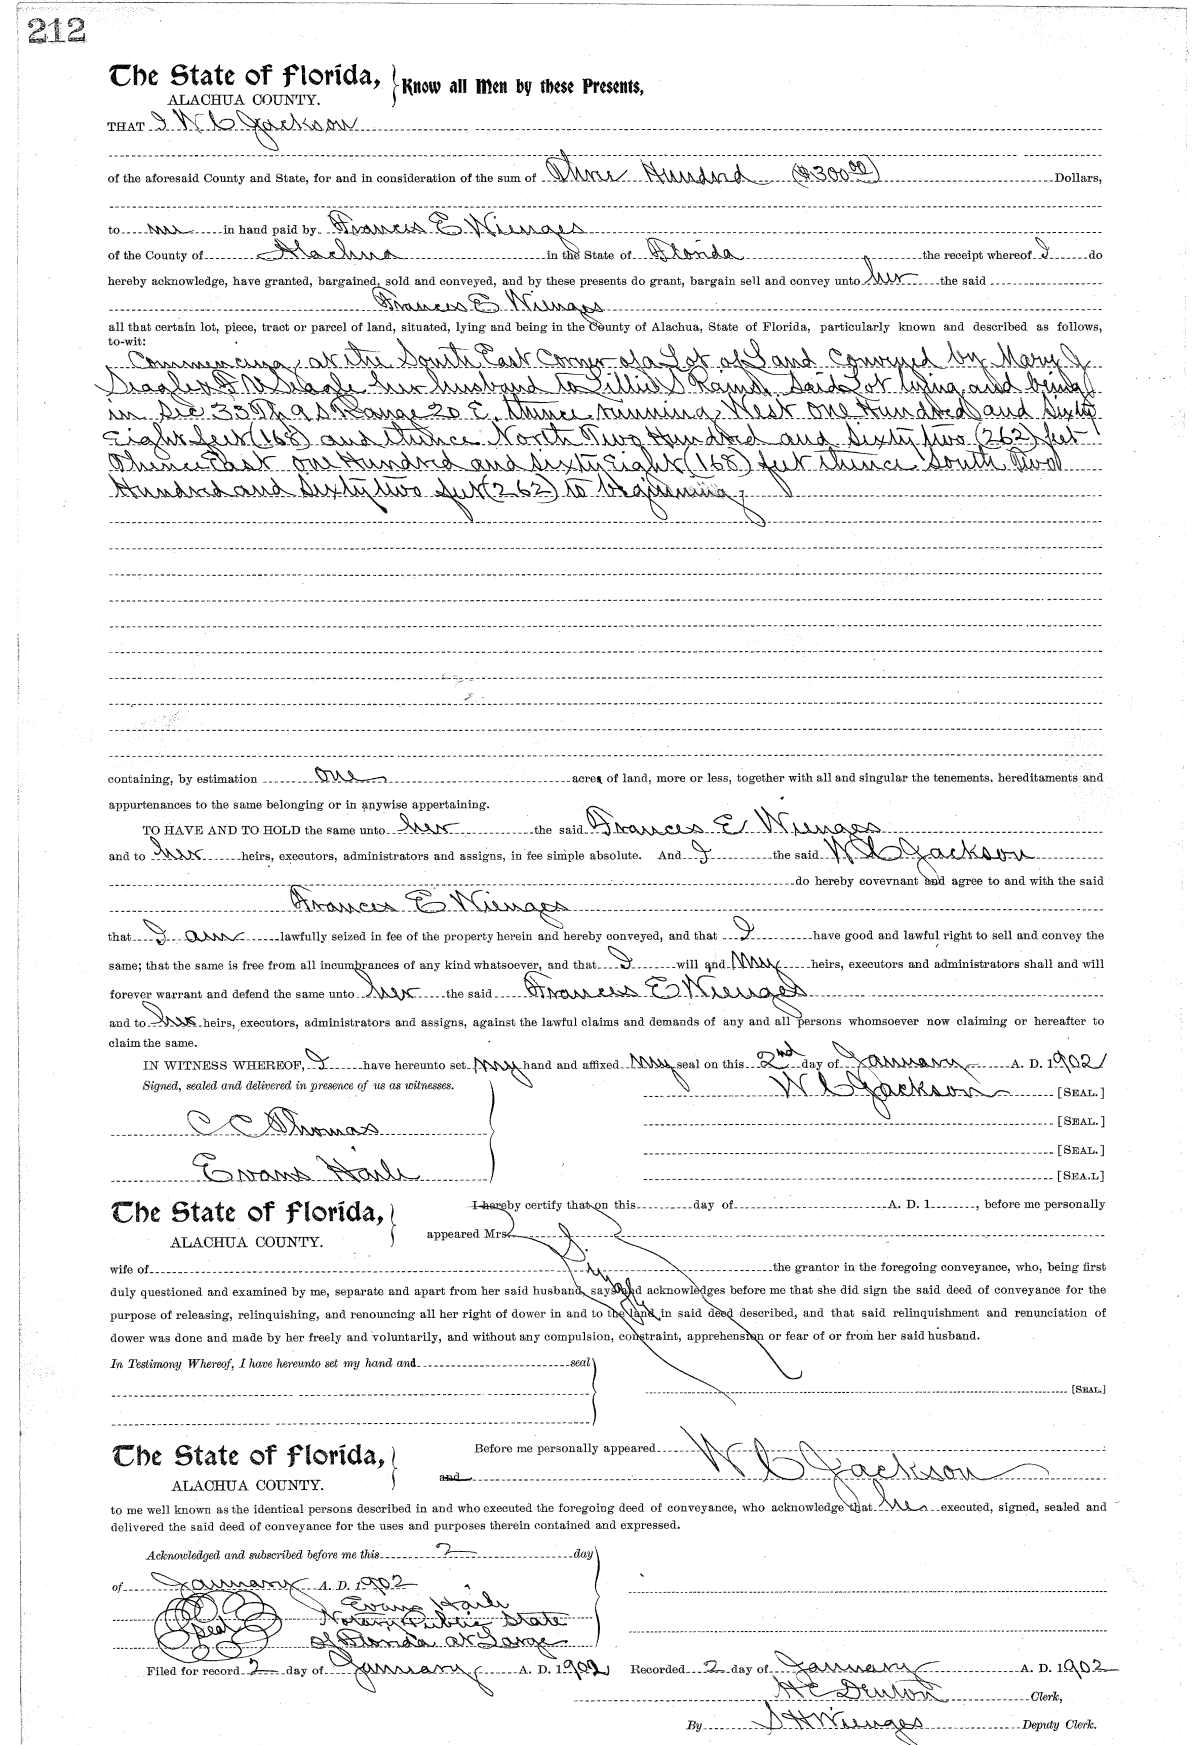 212
The State of Florida, Know all Men by these Presents,
ALACHUA COUNTY.
THAT I W C Jackson
of the aforesaid County and State, for and in consideration of the sum of Three Hundred ($300.00) Dollars,
to me in hand paid by Frances E Wienges
of the County of Alachua in the State of Florida the receipt whereof I do
hereby acknowledge, have granted, bargained, sold and conveyed, and by these presents do grant, bargain sell and convey unto her the said
Frances E Wienges
all that certain lot, piece, tract or parcel of land, situated, lying and being in the County of Alachua, State of Florida, particularly known and described as follows,
to-wit:
Commencing at the South East Corner of a Lot of Land Conveyed by Mary J
Seagle & F W Seagle her husband to Lillie S Rand. Said Lot lying and being
in Sec 33 Th 9 S Range 20 E. thence running West One Hundred and Sixty
Eight feet (168) and thence North Two Hundred and Sixty two (262) feet
Thence East one Hundred and Sixty Eight (168) feet thence South Two
Hundred and Sixty two feet (262) to beginning;
containing, by estimation one acre of land, more or less, together with all and singular the tenements, hereditaments and
appurtenances to the same belonging or in anywise appertaining.
TO HAVE AND TO HOLD the same unto her the said Frances E Wienges
and to her heirs, executors, administrators and assigns, in fee simple absolute. And I the said W C Jackson
do hereby covevnant and agree to and with the said
Frances E Wienges
that I am lawfully seized in fee of the property herein and hereby conveyed, and that I have good and lawful right to sell and convey the
same; that the same is free from all incumbrances of any kind whatsoever, and that I will and My heirs, executors and administrators shall and will
forever warrant and defend the same unto her the said Frances E Wienges
and to her heirs, executors, administrators and assigns, against the lawful claims and demands of any and all persons whomsoever now claiming or hereafter to
claim the same.
IN WITNESS WHEREOF, I have hereunto set my hand and affixed My seal on this 2nd day of January A. D. 1902
Signed, sealed and delivered in presence of us as witnesses. W C Jackson [SEAL.]
C C Thomas [SEAL.]
[SEAL.]
Evans Haile [SEA.L]
The State of Florida, I hereby certify that on this day of A. D. 1 , before me personally
ALACHUA COUNTY. appeared Mrs
wife of the grantor in the foregoing conveyance, who, being first
duly questioned and examined by me, separate and apart from her said husband, says and acknowledges before me that she did sign the said deed of conveyance for the
purpose of releasing, relinquishing, and renouncing all her right of dower in and to the land in said deed described, and that said relinquishment and renunciation of
dower was done and made by her freely and voluntarily, and without any compulsion, constraint, apprehension or fear of or from her said husband.
Single
In Testimony Whereof, I have hereunto set my hand and seal
[SEAL.]
The State of Florida, Before me personally appeared W C Jackson
ALACHUA COUNTY. and
to me well known as the identical persons described in and who executed the foregoing deed of conveyance, who acknowledge that he executed, signed, sealed and
delivered the said deed of conveyance for the uses and purposes therein contained and expressed.
Acknowledged and subscribed before me this 2 day
of January A. D. 1902
Evans Haile
Seal Notary Public State
of Florida at Large
Filed for record 2 day of January A. D. 1902 Recorded 2 day of January A. D. 1902
H C Denton Clerk,
By S H Wienges Deputy Clerk.